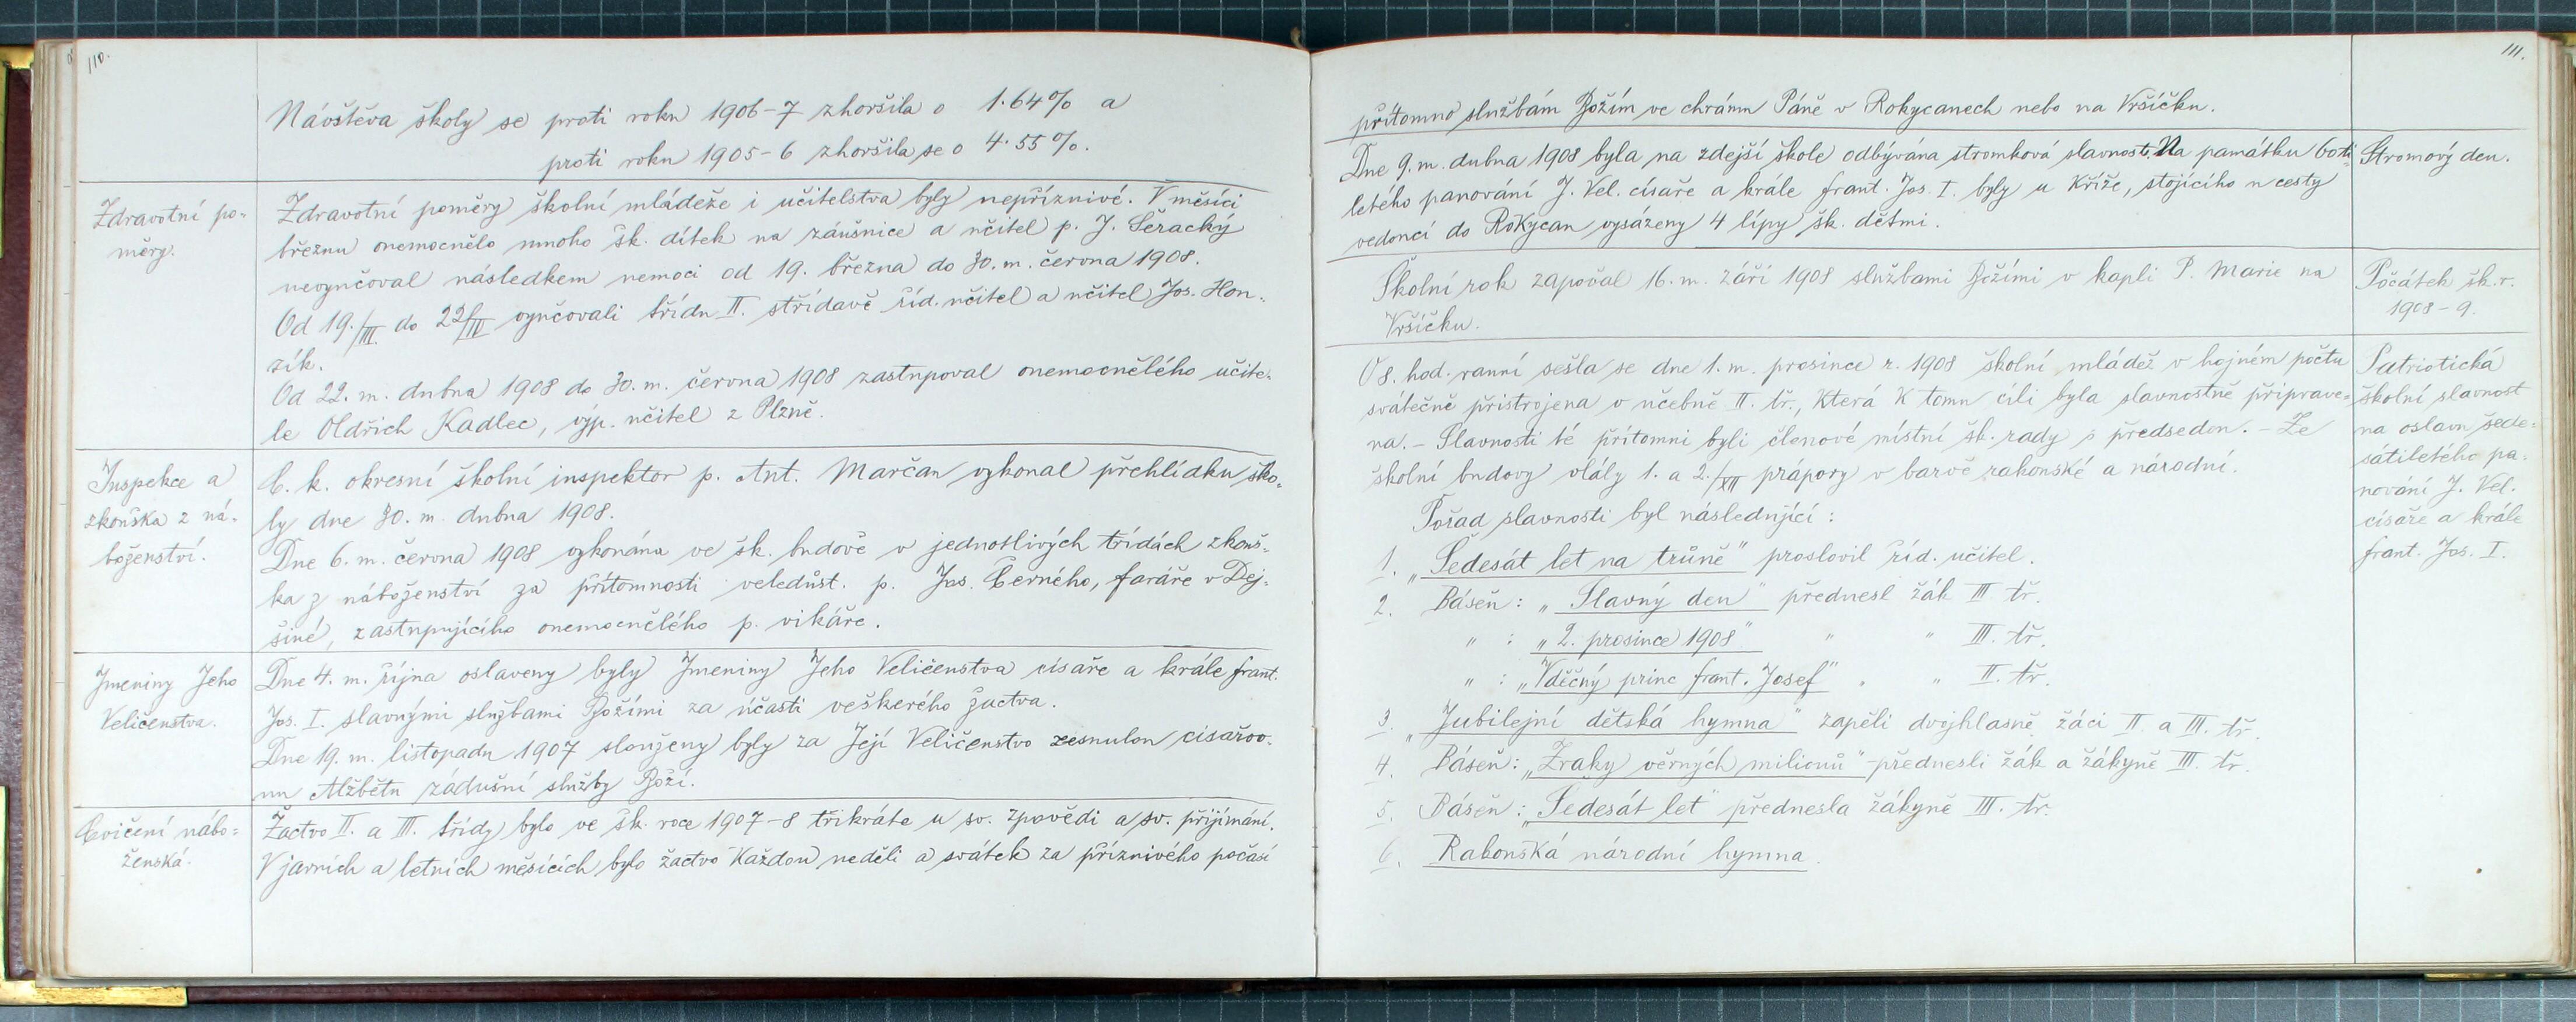 110.
Návštěva školy se proti roku 1906-7 zhoršila o 1·64% a
proti roku 1905-6 zhoršila se o 4·55%.
Zdravotní po-
měry.
Zdravotní poměry školní mládeže i učitelstva byly nepříznivé. V měsíci
březnu onemocnělo mnoho šk. dítek na záušnice a učitel p. J. Šeracký
nevyučoval následkem nemoci od 19. března do 30. m. června 1908.
Od 19./III. do 22/IV vyučovali třídu II. střídavě říd. učitel a učitel Jos. Hon-
zík.
Od 22. m. dubna 1908 do 30. m. června 1908 zastupoval onemocnělého učite-
le Oldřich Kadlec, výp. učitel z Plzně.
Inspekce a
zkouška z ná-
boženství.
C. k. okresní školní inspektor p. Ant. Marčan vykonal přehlídku ško-
ly dne 30. m. dubna 1908.
Dne 6. m. června 1908 vykonána ve šk. budově v jednotlivých třídách zkouš-
ka z náboženství za přítomnosti veledůst. p. Jos. Černého, faráře v Dej-
šině, zastupujícího onemocnělého p. vikáře.
Jmeniny Jeho
Veličenstva.
Dne 4. m. října oslaveny byly Jmeniny Jeho Veličenstva císaře a krále frant.
Jos. I. slavnými službami Božími za účasti veškerého žactva.
Dne 19. m. listopadu 1907 slouženy byly za Její Veličenstvo zesnulou císařov-
nu Alžbětu zádušní služby Boží.
Cvičení nábo-
ženská.
Žactvo II. a III. třídy bylo ve šk. roce 1907-8 třikráte u sv. zpovědi a sv. přijímání.
V jarních a letních měsících bylo žactvo každou neděli a svátek za příznivého počasí
111.
přítomno službám Božím ve chrámu Páně v Rokycanech nebo na Vršíčku.
Dne 9. m. dubna 1908 byla na zdejší škole odbývána stromková slavnost. Na památku 60ti-
letého panování J. Vel. císaře a krále frant. Jos. I. byly u kříže, stojícího u cesty
vedoucí do Rokycan vysázeny 4 lípy šk. dětmi.
Stromový den.
Školní rok započal 16. m. září 1908 službami Božími v kapli P. Marie na
Vršíčku.
Počátek šk. r.
1908-9.
O 8. hod. ranní sešla se dne 1. m. prosince r. 1908 školní mládež v hojném počtu
svátečně přistrojena v učebně II. tř., která k tomu cíli byla slavnostně připrave-
na. - Slavnosti té přítomni byli členové místní šk. rady s předsedou. - Ze
školní budovy vlály 1. a 2./XII prápory v barvě rakouské a národní.
Patriotická
školní slavnost
na oslavu šede-
sátiletého pa-
nování J. Vel.
císaře a krále
frant. Jos. I.
Pořad slavnosti byl následující:
1. „Šedesát let na trůně" proslovil říd. učitel.
2. Báseň: „Slavný den" přednesl žák III tř.
" : „2. prosince 1908" " " III. tř.
" : „Vděčný princ frant. Josef" " " II. tř.
3. „Jubilejní dětská hymna" zapěli dvojhlasně žáci II. a III. tř.
4. Báseň: „Zraky věrných milionů" - přednesli žák a žákyně III. tř.
5. Báseň: „Šedesát let" přednesla žákyně III. tř.
6. Rakouská národní hymna.